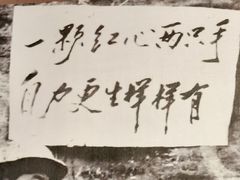 一颗红心两只手
自力更生样样有